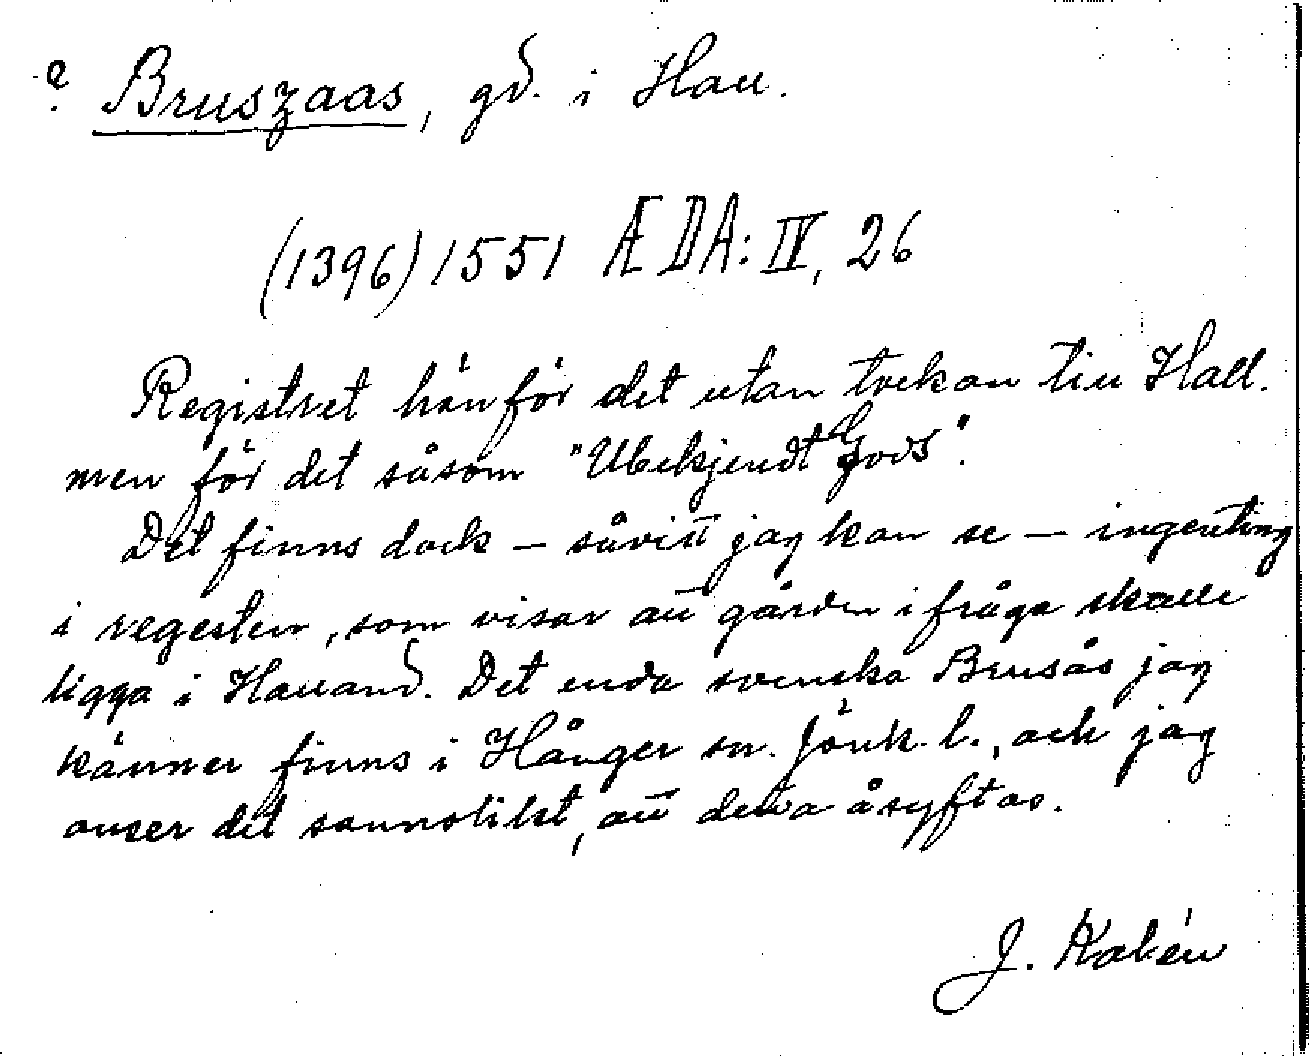 ? Bruszaas, gd. i Hall.
(1396) 1551 ÆDA: IV, 26
Registret hänför det utan tvekan till Hall.
men för det såsom "Ubekjendt Gods".
Det finns dock – såvitt jag kan se – ingenting
i regesten, som visar att gården i fråga skulle
ligga i Halland. Det enda svenska Brusås jag
känner finns i Hånger sn. Jönk. l., och jag
anser det sannolikt, att detta åsyftas.
J. Kalén